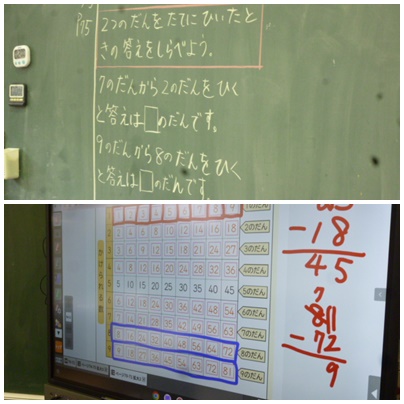 P75
2つのだんをたてにひいたと
きの答えをしらべよう。
7のだんから2のだんをひく
と答えは□のだんです。
9のだんから8のだんをひく
と答えは□のだんです。
2 4 6 8 10 12 14 16 18 2のだん
3 6 9 12 15 18 21 24 27 3のだん
4 8 12 16 20 24 28 32 36 4のだん
5 10 15 20 25 30 35 40 45 5のだん
6 12 18 24 30 36 42 48 54 6のだん
7 14 21 28 35 42 49 56 63 7のだん
8 16 24 32 40 48 56 64 72 8のだん
9 18 27 36 45 54 63 72 81 9のだん
かけられる数
-18
45
81
-72
9